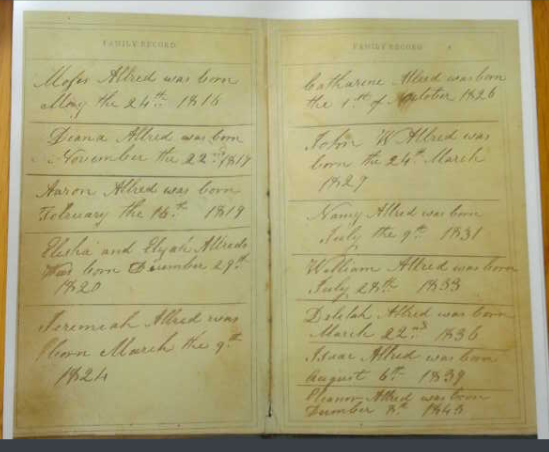 FAMILY RECORD
Moses Allred was born
May the 24th 1816
Diana Allred was born
November the 22nd 1817
Aaron Allred was born
February the 16th 1819
Elisha and Elijah Allreds
was born December 29th
1820
Jeremiah Allred was
born March the 9th
1824
FAMILY RECORD
Catharine Allred was born
the 1st of October 1826
John W Allred was
born the 24th March
1829
Nancy Allred was born
July the 9th 1831
William Allred was born
July 28th 1833
Delilah Allred was born
March 22nd 1836
Isaac Allred was born
August 6th 1839
Eleanor Allred was born
December 8th 1843